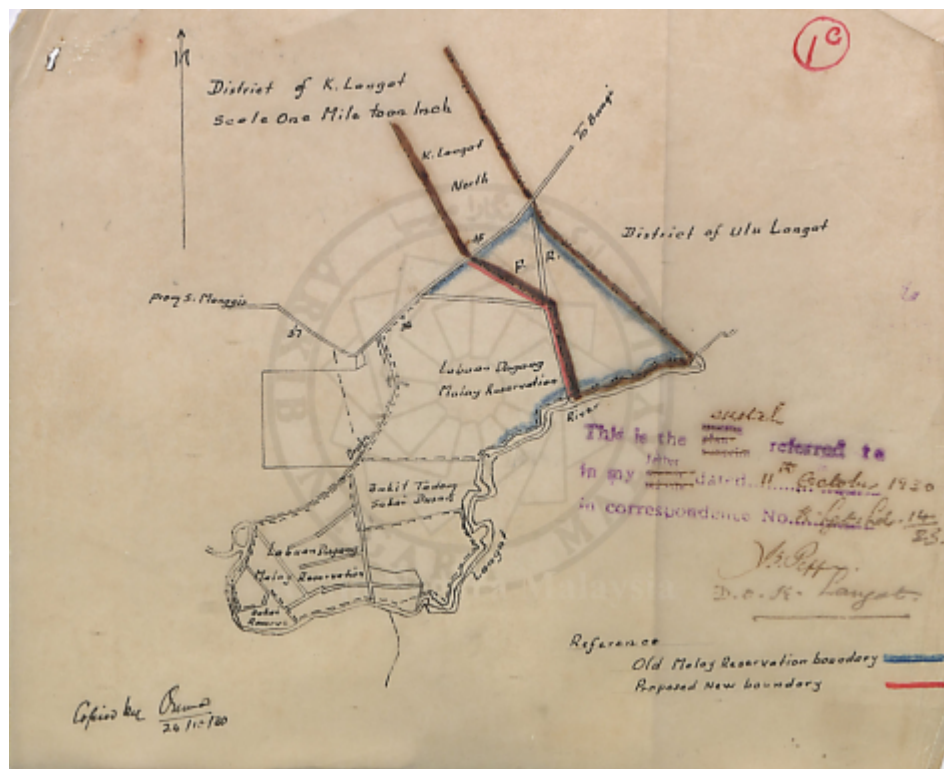 1c
District of K. Langat
Scale One Mile to an Inch
To Bangi
K. Langat
North
District of Ulu Langat
15
F. R.
From S. Manggis
37
36
Labuan Dagang
Malay Reservation
River
Bukit Tadong
Sakai Reserve
Langat
Labuan Dagang
Malay Reservation
Sakai
Reserve
sketch
This is the referred to
in my letter dated 11th October 1930
in correspondence No.
D.O. K. Langat.
Reference
Old Malay Reservation boundary
Proposed New boundary
Copied by